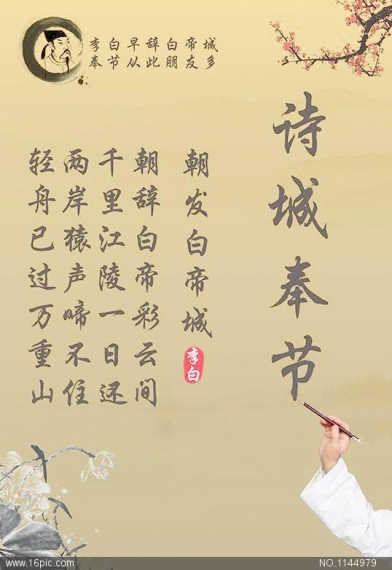 李白早辞白帝城
奉节从此朋友多
诗城奉节
朝发白帝城
李白
朝辞白帝彩云间
千里江陵一日还
两岸猿声啼不住
轻舟已过万重山
www.16pic.com
NO.1144979